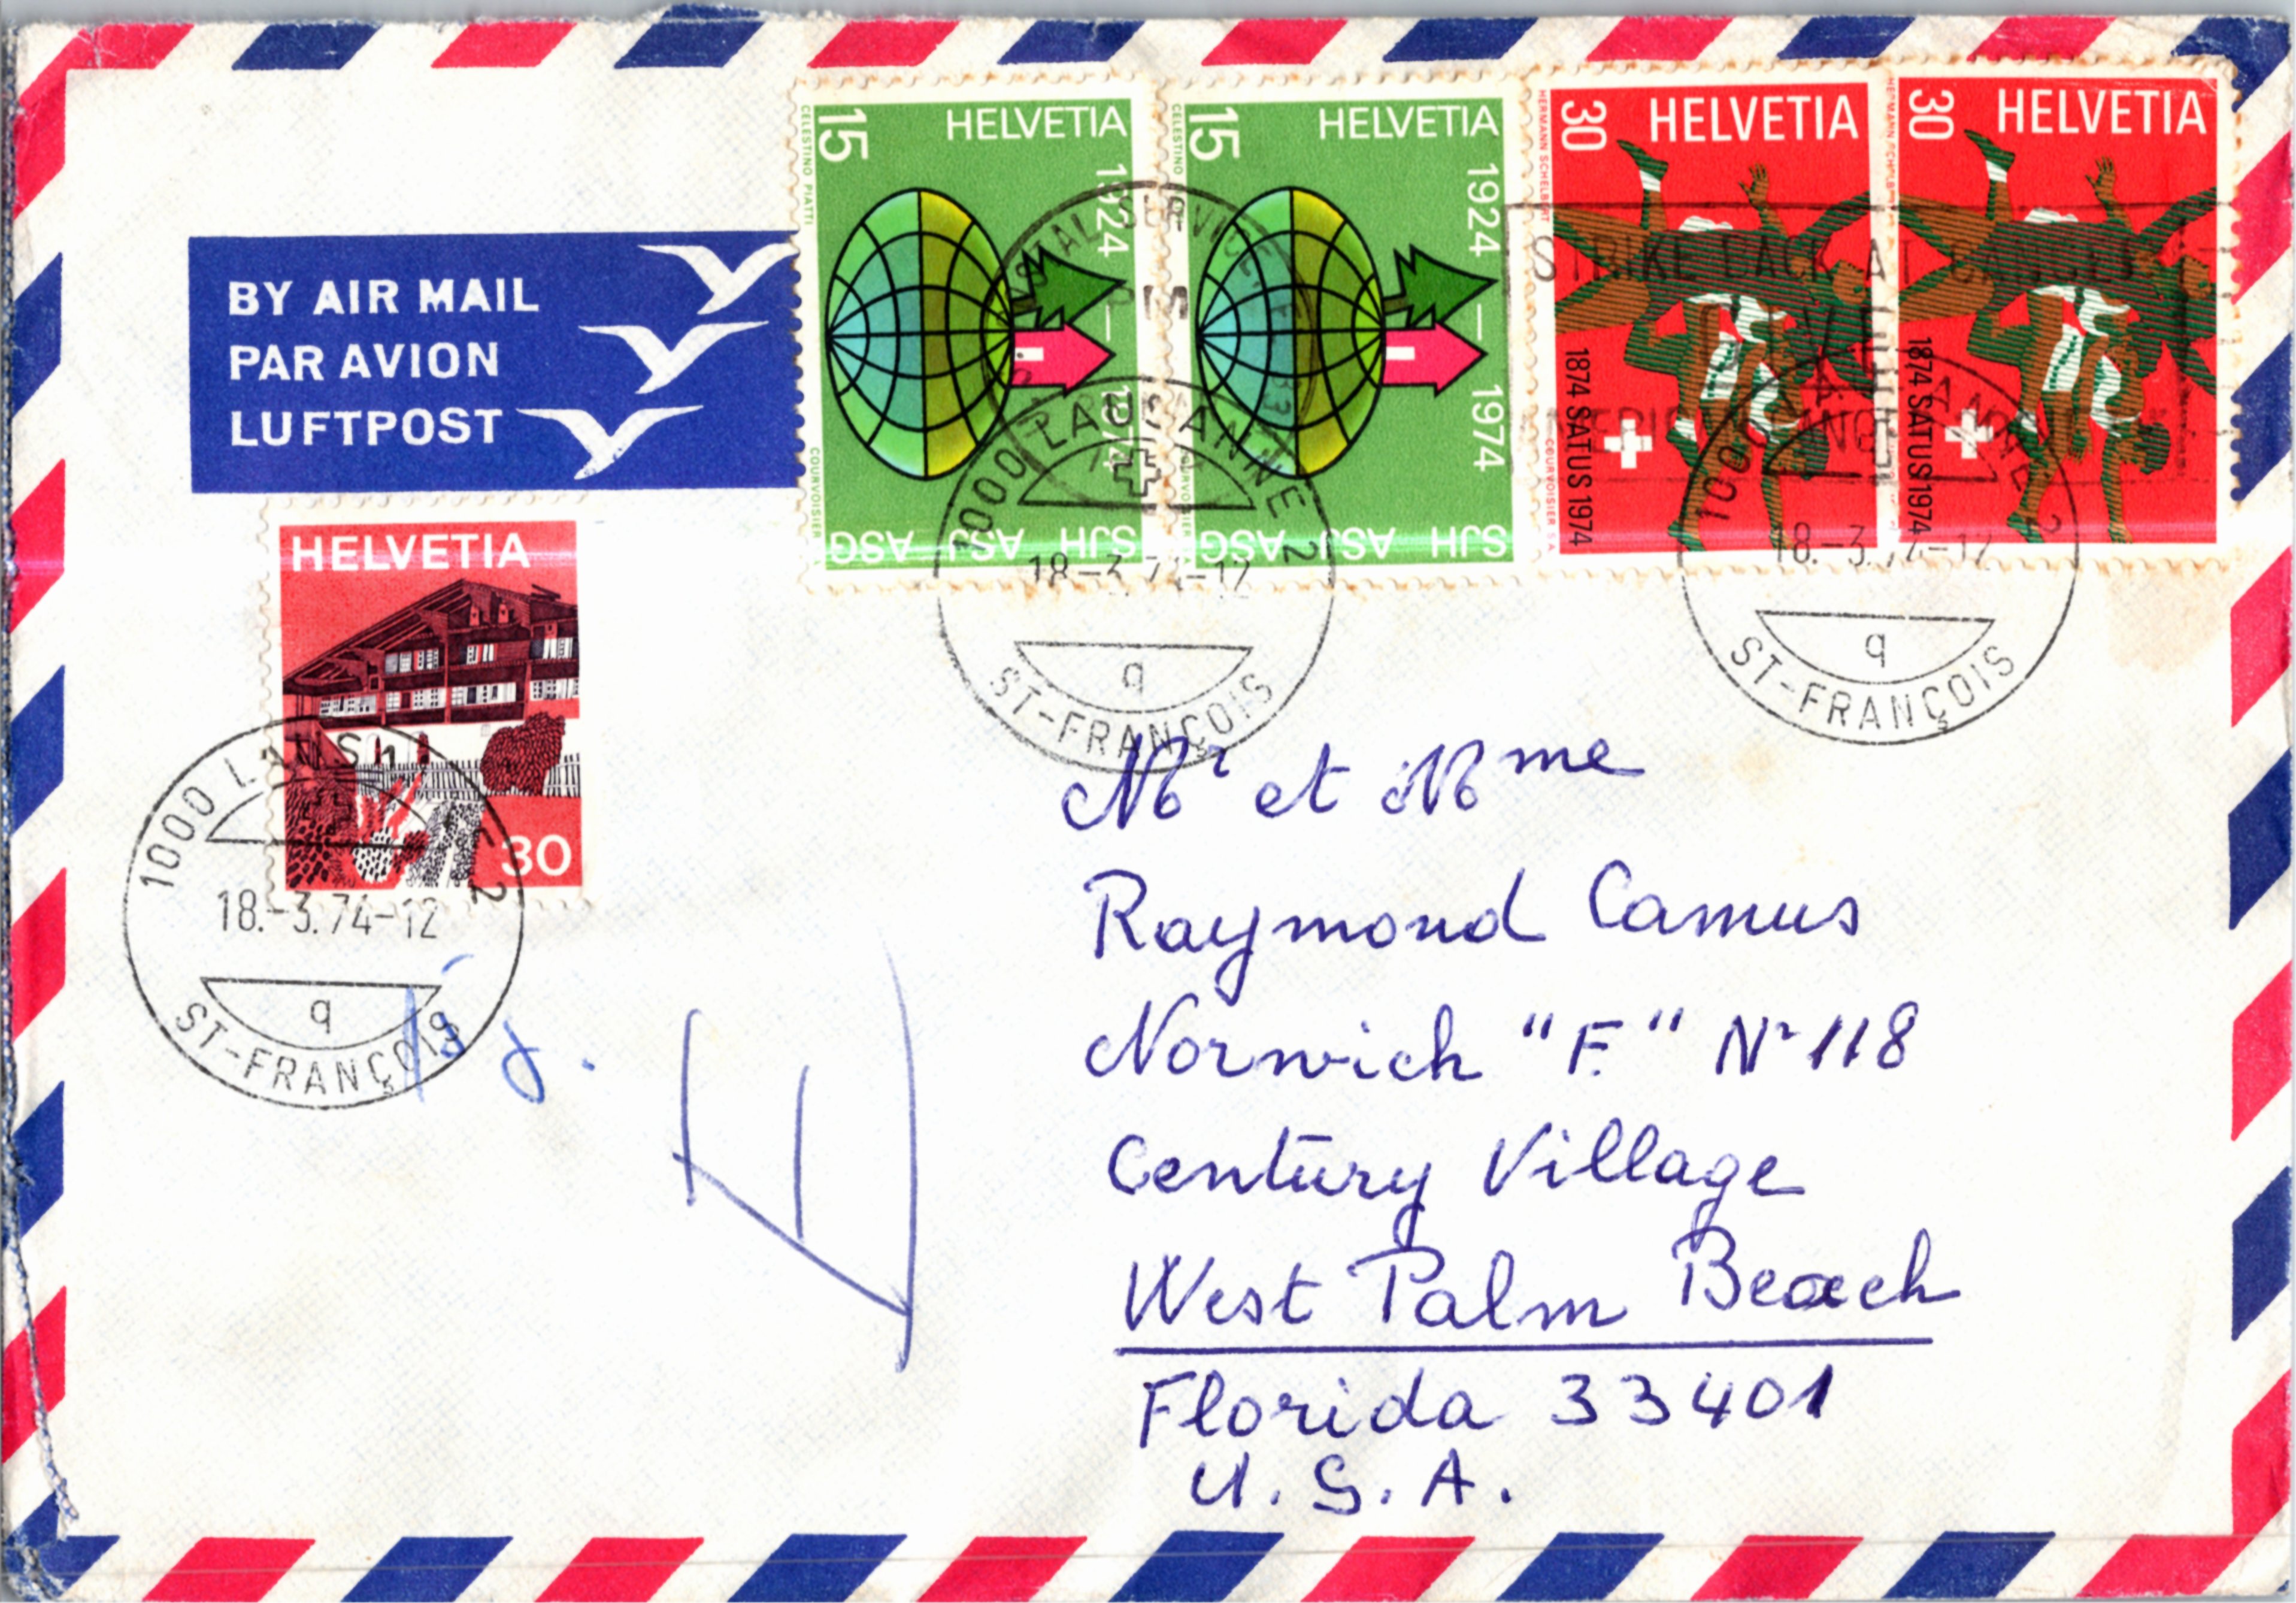 BY AIR MAIL
PAR AVION
LUFTPOST
HELVETIA
15
1924–1974
SJH ASJ ASG
CELESTINO PIATTI
COURVOISIER
HELVETIA
15
1924–1974
SJH ASJ ASG
CELESTINO PIATTI
COURVOISIER
30
HELVETIA
1874 SATUS 1974
HERMANN SCHELBERT
COURVOISIER S.A.
30
HELVETIA
1874 SATUS 1974
STRIKE BACK AT
GIVE
1000 LAUSANNE 2
18.-3.74-12
q
ST-FRANÇOIS
1000 LAUSANNE 2
18.-3.74-12
q
ST-FRANÇOIS
HELVETIA
30
1000 LAUSANNE 2
18.-3.74-12
q
ST-FRANÇOIS
Mr et Mme
Raymond Camus
Norwich "F." No 118
Century Village
West Palm Beach
Florida 33401
U.S.A.